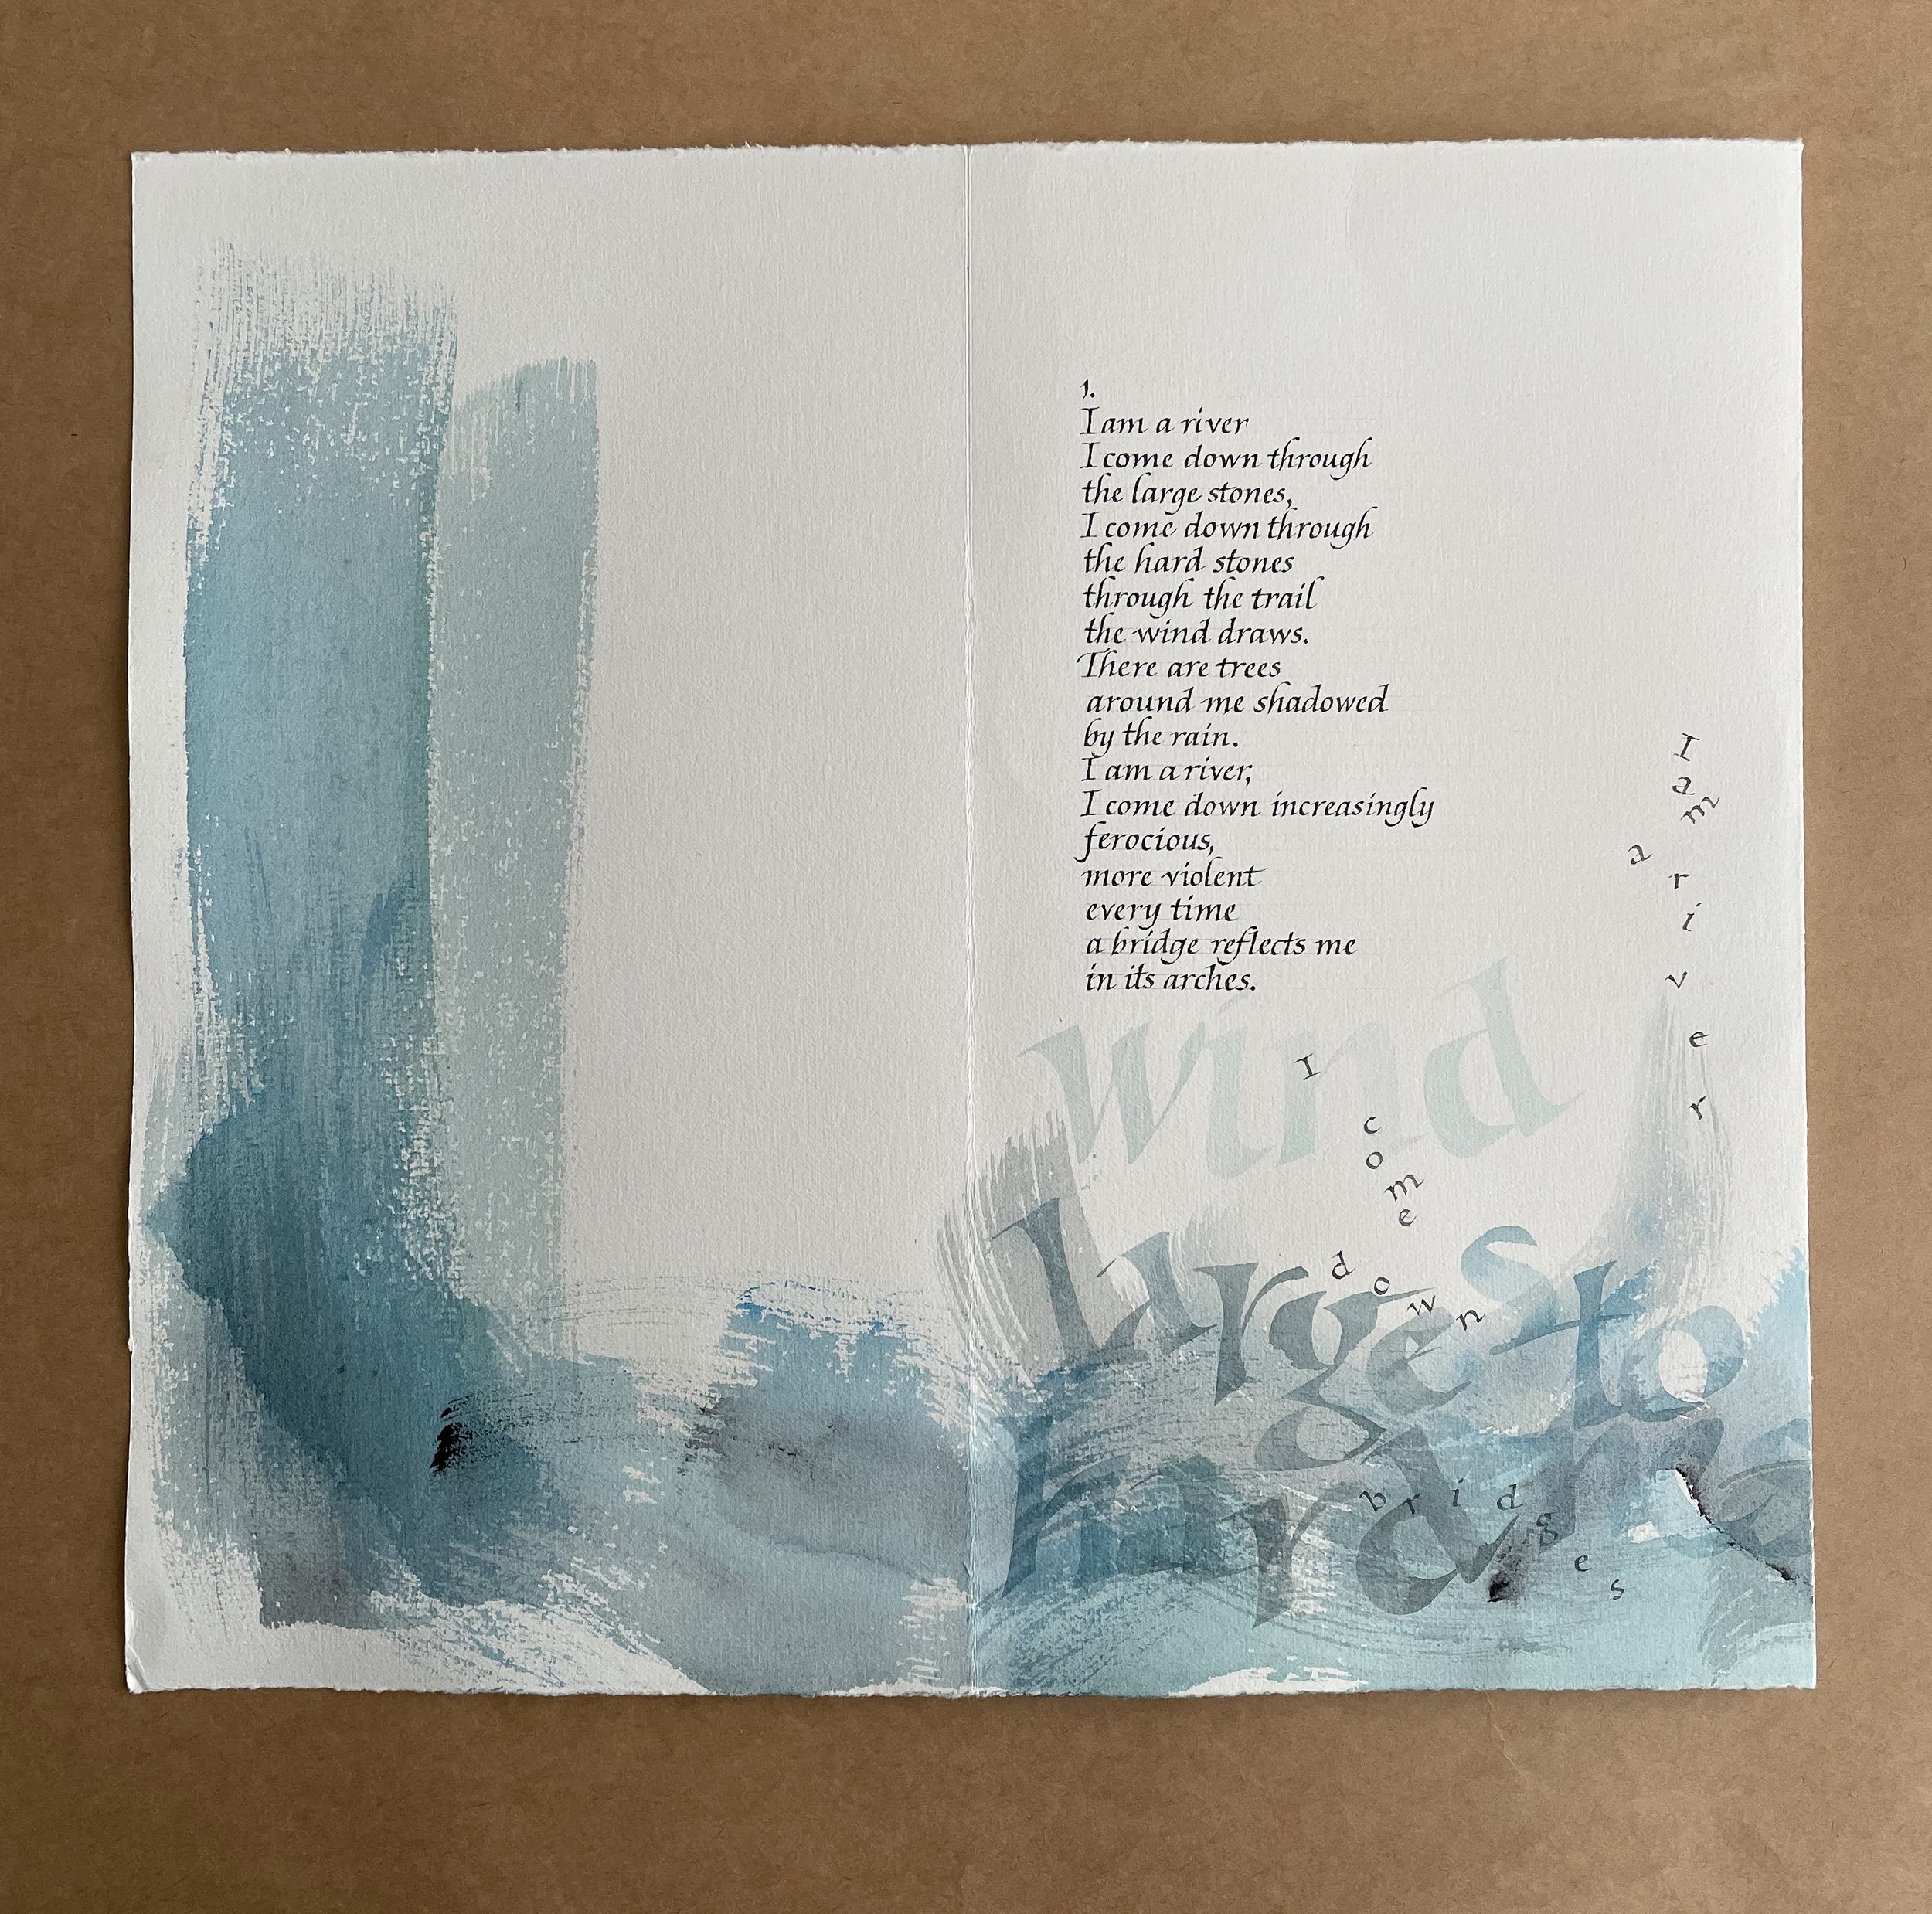 1.
I am a river
I come down through
the large stones,
I come down through
the hard stones
through the trail
the wind draws.
There are trees
around me shadowed
by the rain.
I am a river,
I come down increasingly
ferocious,
more violent
every time
a bridge reflects me
in its arches.
I am a river
wind
I come down
large sto
hard
bridges